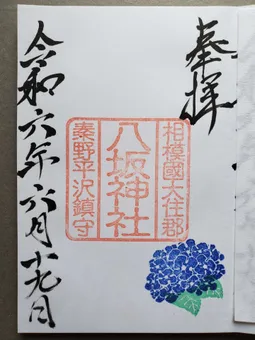 奉拝
相模國大住郡
八坂神社
秦野平沢鎮守
令和六年六月十九日